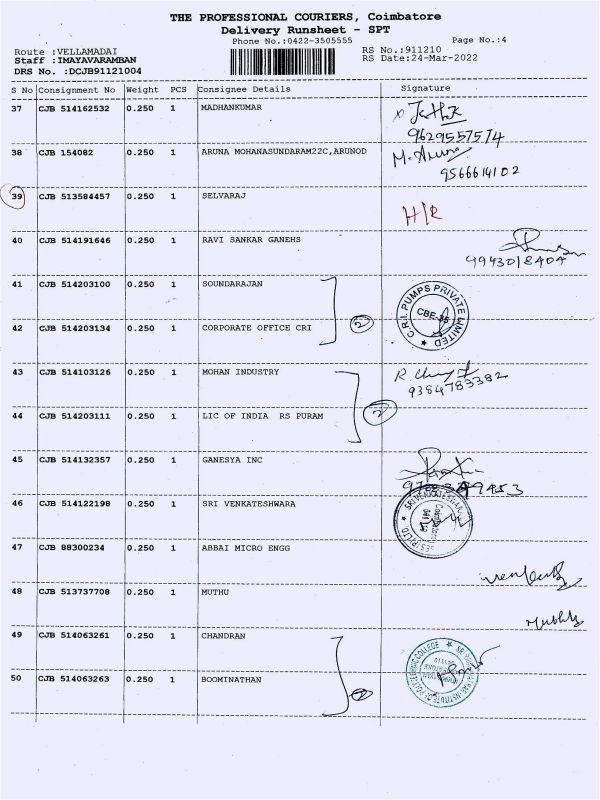 THE PROFESSIONAL COURIERS, Coimbatore
Delivery Runsheet - SPT
Phone No.:0422-3505555
Page No.:4
Route :VELLAMADAI
RS No.:911210
Staff :IMAYAVARAMBAN
RS Date:24-Mar-2022
DRS No. :DCJB91121004
S No Consignment No Weight PCS Consignee Details Signature
37 CJB 514162532 0.250 1 MADHANKUMAR
9629557574
38 CJB 154082 0.250 1 ARUNA MOHANASUNDARAM22C,ARUNOD M. Aruna
9566614102
39 CJB 513584457 0.250 1 SELVARAJ H/R
40 CJB 514191646 0.250 1 RAVI SANKAR GANEHS
9943018404
41 CJB 514203100 0.250 1 SOUNDARAJAN
2
C.R.I. PUMPS PRIVATE LIMITED
CBE-35
42 CJB 514203134 0.250 1 CORPORATE OFFICE CRI
43 CJB 514103126 0.250 1 MOHAN INDUSTRY
9384783382
2
44 CJB 514203111 0.250 1 LIC OF INDIA RS PURAM
45 CJB 514132357 0.250 1 GANESYA INC
46 CJB 514122198 0.250 1 SRI VENKATESHWARA
47 CJB 88300234 0.250 1 ABBAI MICRO ENGG
48 CJB 513737708 0.250 1 MUTHU
49 CJB 514063261 0.250 1 CHANDRAN
50 CJB 514063263 0.250 1 BOOMINATHAN
2